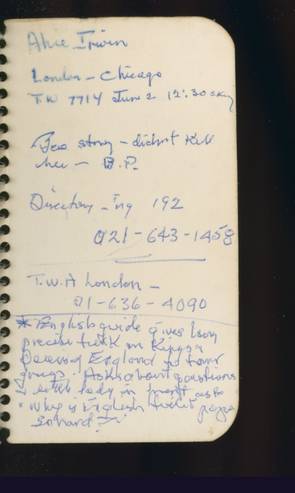 Irwin
London - Chicago
T.W 7714 June 2 12:30
story - didn't kill
her - B.P.
Directory - ing 192
021-643-1458
T.W.A London -
01-636-4090
* English guide gives long
precise talk on Kings
England to tour
group. Asks about questions
lady in front asks
"Why is English toilet paper
so hard?"